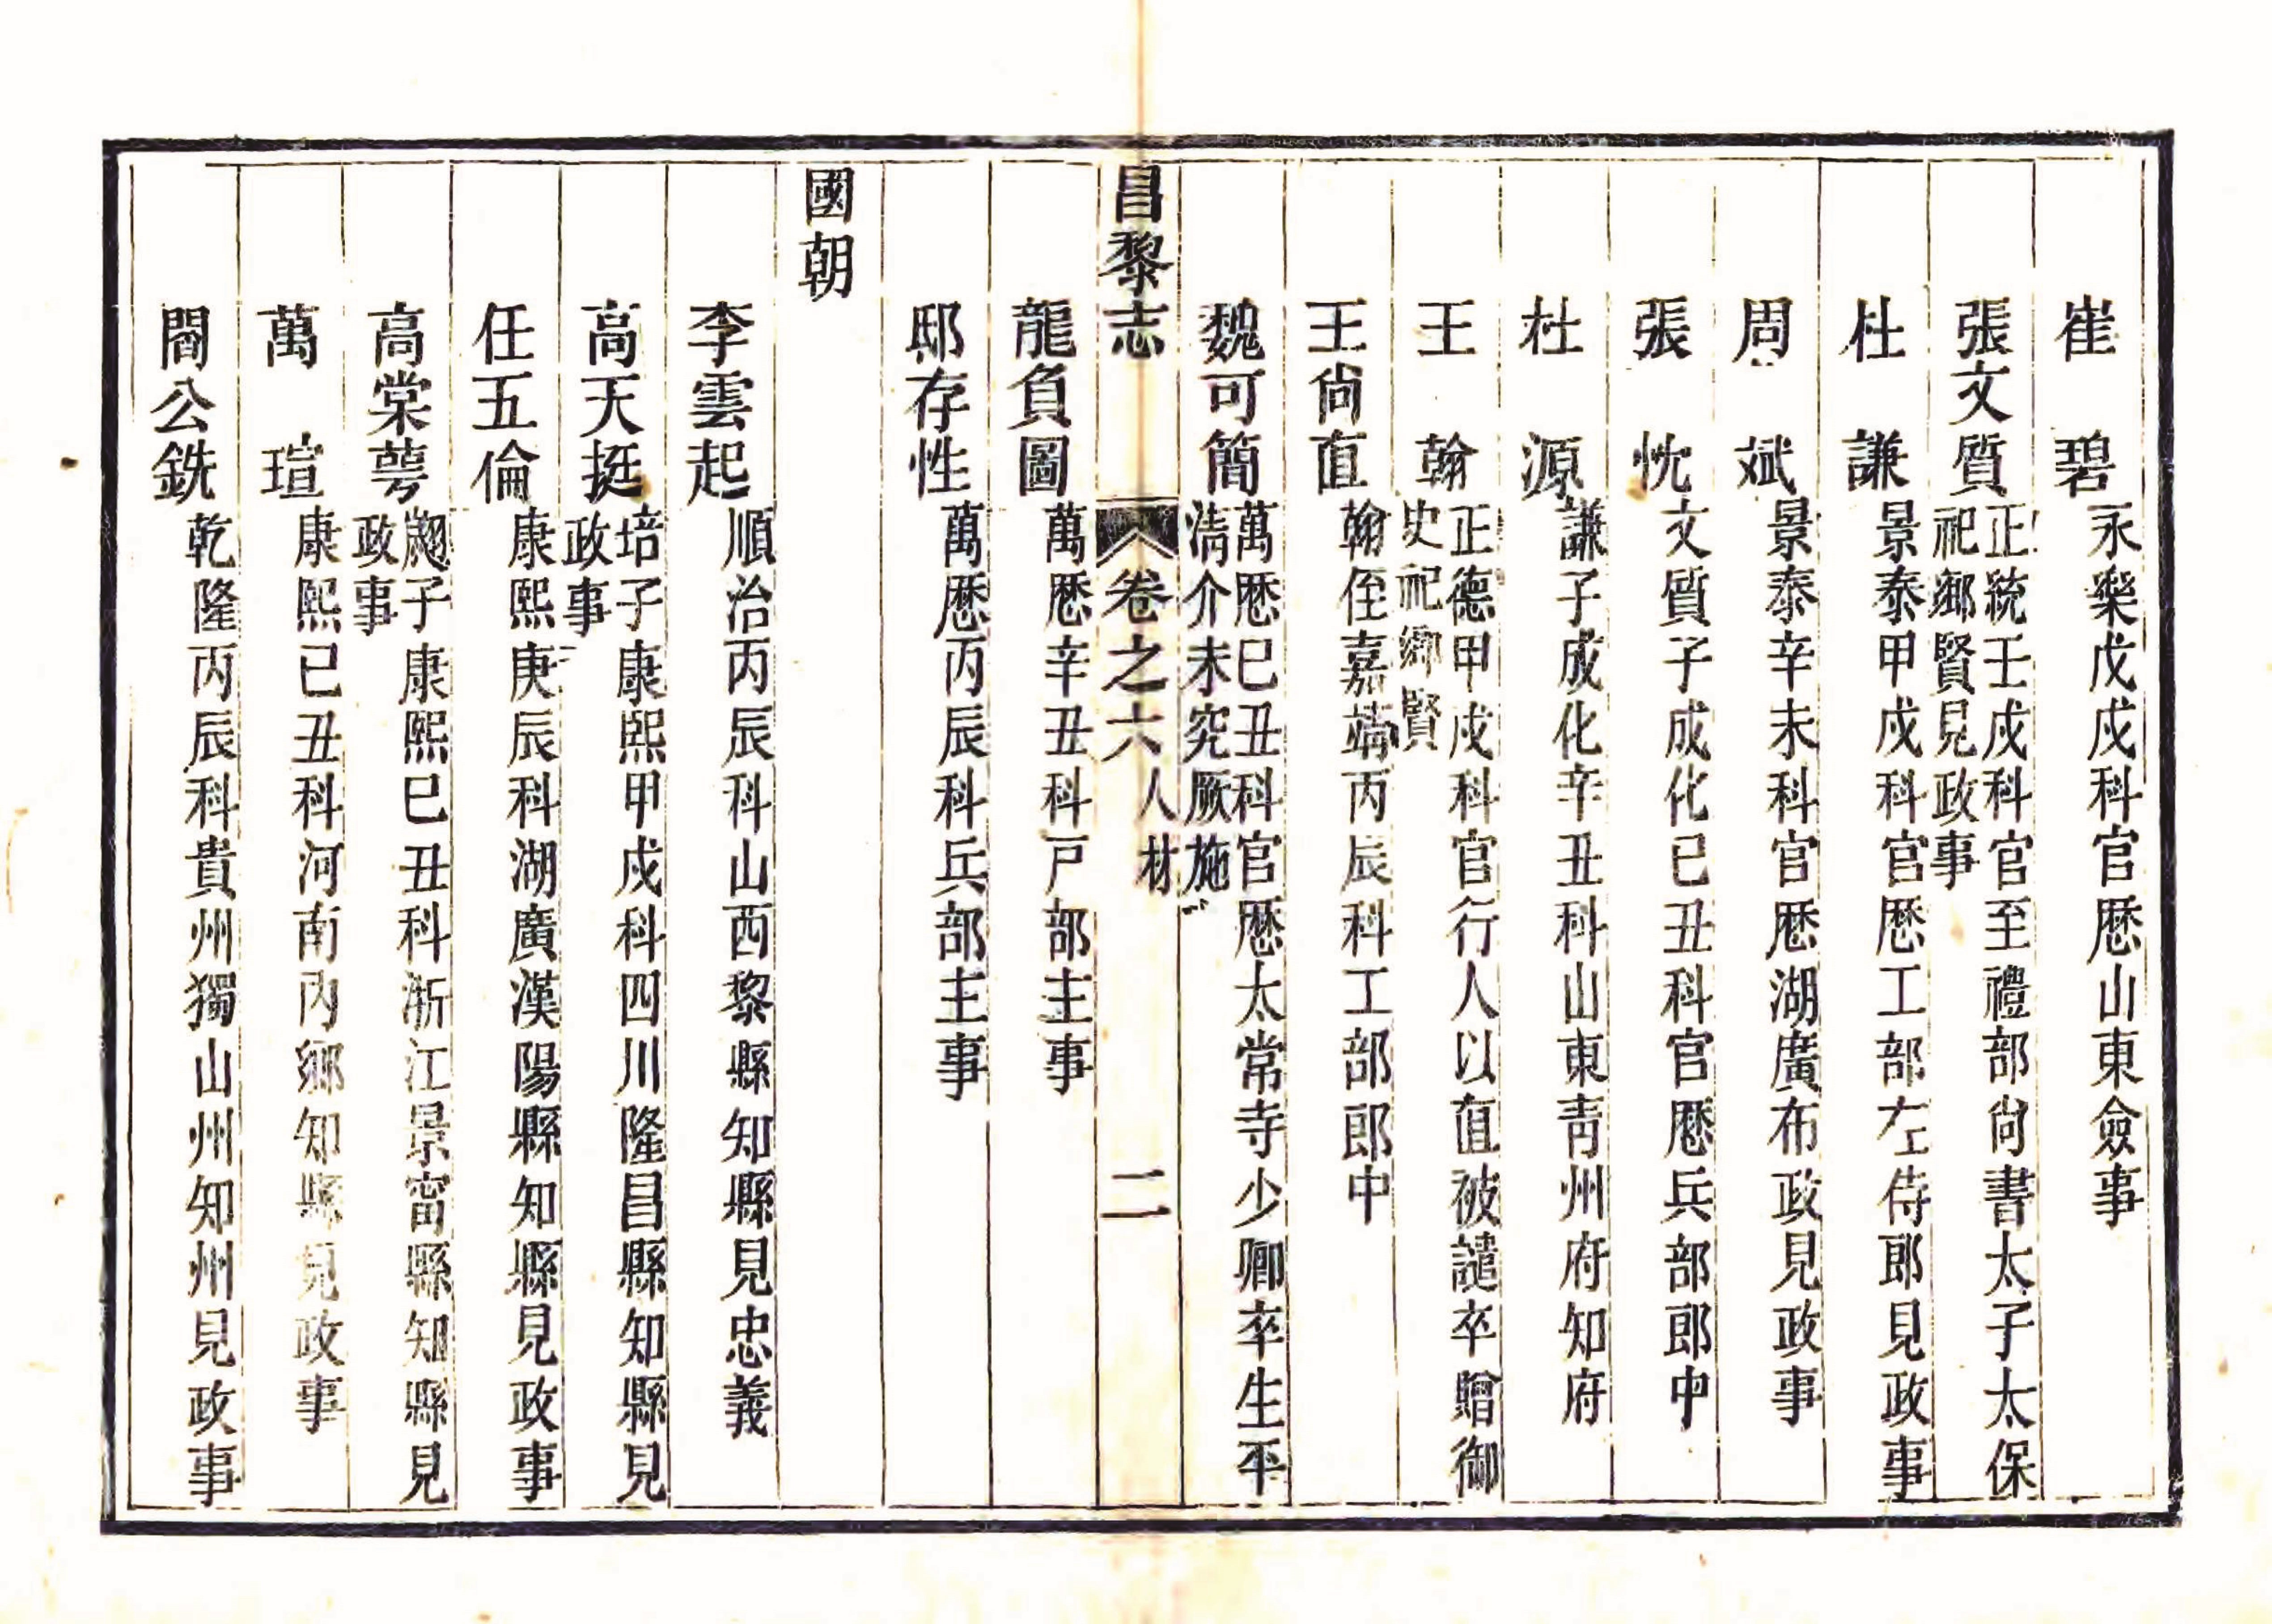 崔　碧　永樂戊戌科官歴山東僉事
張文質　正統壬戌科官至禮部尚書太子太保
祀鄉賢見政事
杜　謙　景泰甲戌科官歴工部左侍郎見政事
周　斌　景泰辛未科官歴湖廣布政見政事
張　忱　文質子成化己丑科官歴兵部郎中
杜　源　謙子成化辛丑科山東青州府知府
王　翰　正德甲戌科官行人以直被譴卒贈御
史祀鄉賢
王尚直　翰侄嘉靖丙辰科工部郎中
魏可簡　萬歴己丑科官歴太常寺少卿卒生平
清介未究厥施
昌黎志　卷之六　人材　二
龍負圖　萬歴辛丑科戸部主事
邸存性　萬歴丙辰科兵部主事
國朝
李雲起　順治丙辰科山西黎縣知縣見忠義
高天挺　培子康熙甲戌科四川隆昌縣知縣見
政事
任五倫　康熙庚辰科湖廣漢陽縣知縣見政事
高棠萼　翽子康熙己丑科浙江景甯縣知縣見
政事
萬　瑄　康熙己丑科河南內鄉知縣見政事
閻公銑　乾隆丙辰科貴州獨山州知州見政事